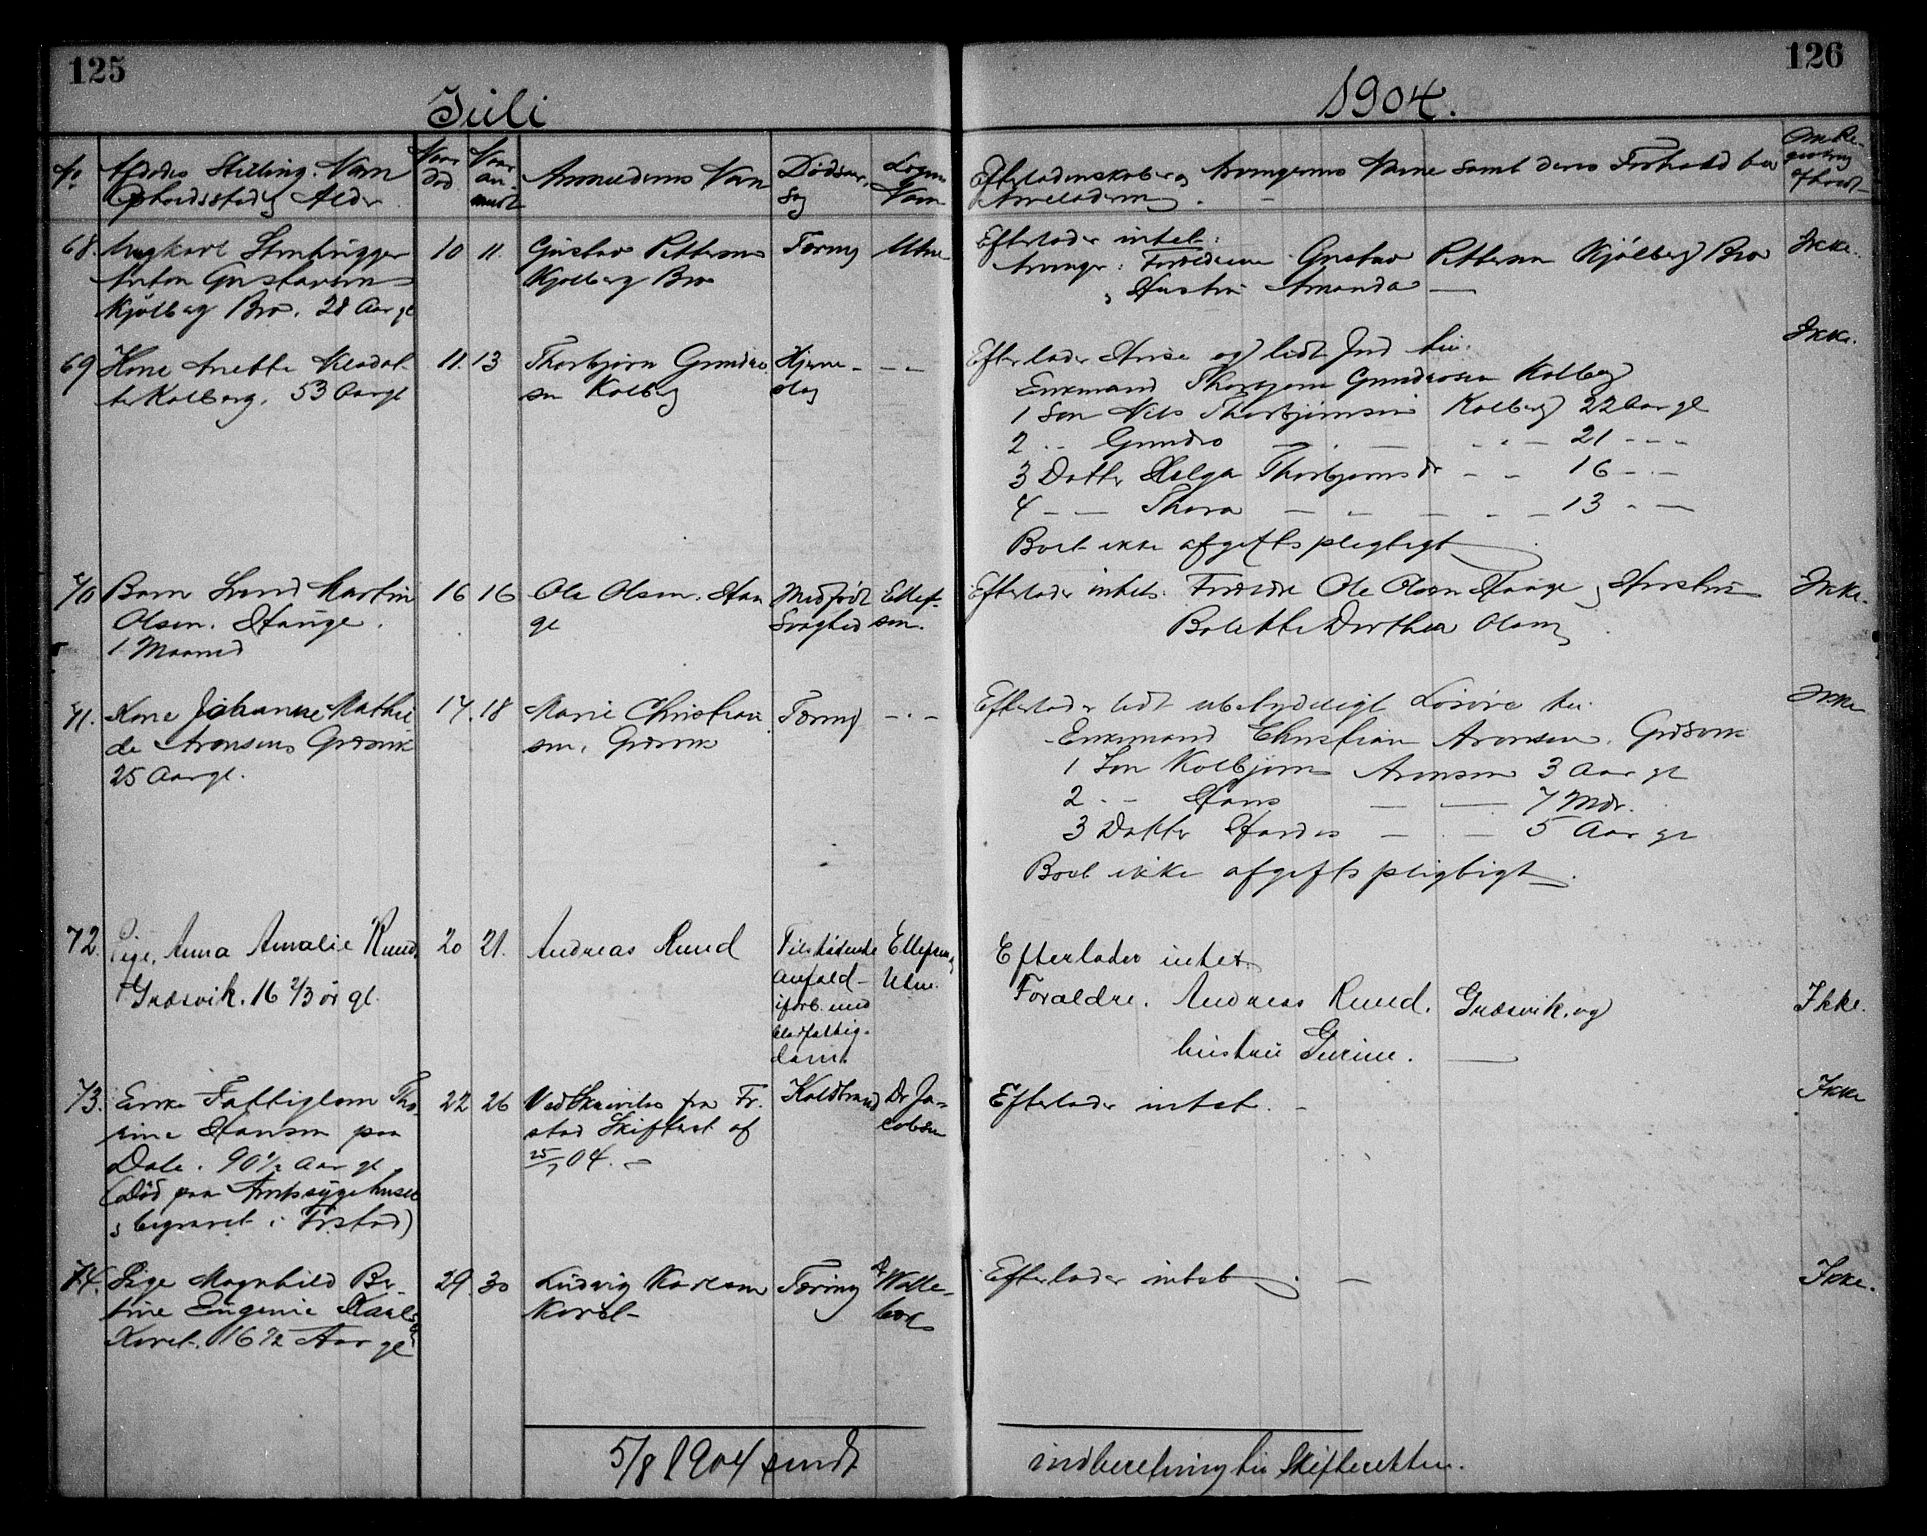 125
126
Juli
1904.
No
Afdødes Stilling. Navn
Opholdssted og Alder
Naar
død
Naar
an-
meldt
Anmelderens Navn
Dødsaar-
sag
Lægens
Navn
Efterladenskaber og Arvingernes Navne samt deres Forhold til
Arveladeren
68. Ungkarl Stenhugger
Anton Gustavsen
Kjølberg Bro. 28 Aar gl
10 11.
Gustav Pettersen
Kjølberg Bro
Tæring
Utne
Efterlader intet.
Arvinger: Forældrene Gustav Pettersen Kjølberg Bro
og Hustru Amanda —
Ikke.
69 Kone Anette
Kolberg. 53 Aar gl
11. 13
Thorbjørn Gundro
sen Kolberg
Hjerne-
slag
— " —
Efterlader Huse og lidt Jord til.
Enkemand Thorbjørn Gundrosen Kolberg
1 Søn Nils Thorbjørnsen Kolberg 22 Aar gl
2 " Gundro — " — 21 - - -
3 Datter Helga Thorbjørnsdr - - 16 - - -
4 — — Thora — — — — 13 - —
Boet ikke afgiftspligtigt
Ikke.
70 Barn Svend Martin
Olsen. Hauge.
1 Maaned
16 16
Ole Olsen. Hau
ge
Medfødt
Svaghed
Ellef-
sen.
Efterlader intet. Forældre Ole Olsen Hauge og Hustru
Bolette Dorthea Olsen
Ikke.
71. Kone Johanne Mathil
de Aronsens Græsvik
25 Aar gl.
17. 18
Marie Christian
sen, Græsvik
Tæring
— " —
Efterlader lidt ubetydeligt Løsøre til.
Enkemand Christian Aronsen. Græsvik
1 Søn Kolbjørn Aronsen 3 Aar gl
2 - - Hans — — 7 Mdr.
3 Datter Hardis — — 5 Aar gl
Boet ikke afgiftspligtigt.
Ikke
72. Pige, Anna Amalie Ruud
Græsvik. 16 2/3 år gl.
20 21.
Andreas Ruud
Tilstødende
anfald
iforb. med
blodfattig-
dom.
Ellefsen og
Utne.
Efterlader intet.
Forældre. Andreas Ruud. Græsvik. og
hustru Gurine. —
Ikke.
73. Enke Fattiglem Tho-
rine Hansen paa
Dale. 90 1/2 Aar gl
(Død paa Amtssygehuset
og begravet i Frstad)
22 26
Ved Skrivelse fra Fr.
stad Skifteret af
25/7 04. —
Koldbrand
Dr Ja-
cobsen
Efterlader intet. —
Ikke
74. Pige Magnhild Be-
tine Eugenie Karlsen
Koret. 16 1/2 Aar gl
29. 30
Ludvig Karlsen
Koret
Tæring
Dr Wolle-
bæk
Efterlader intet. —
Ikke.
5/8 1904 sendt
indberetning til Skifteretten.